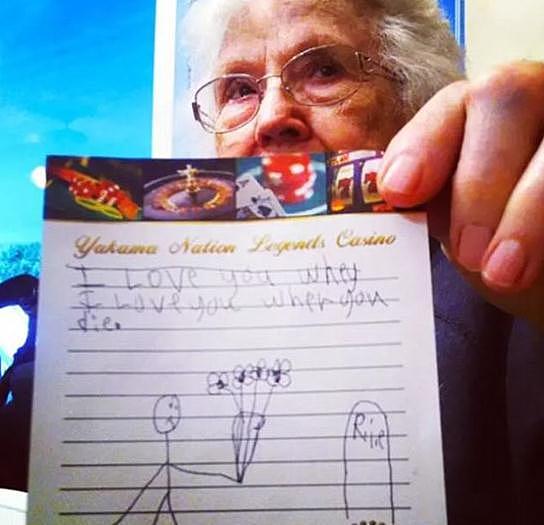 Yakama Nation Legends Casino
I Love you when
I Love you when you
die.
RIP